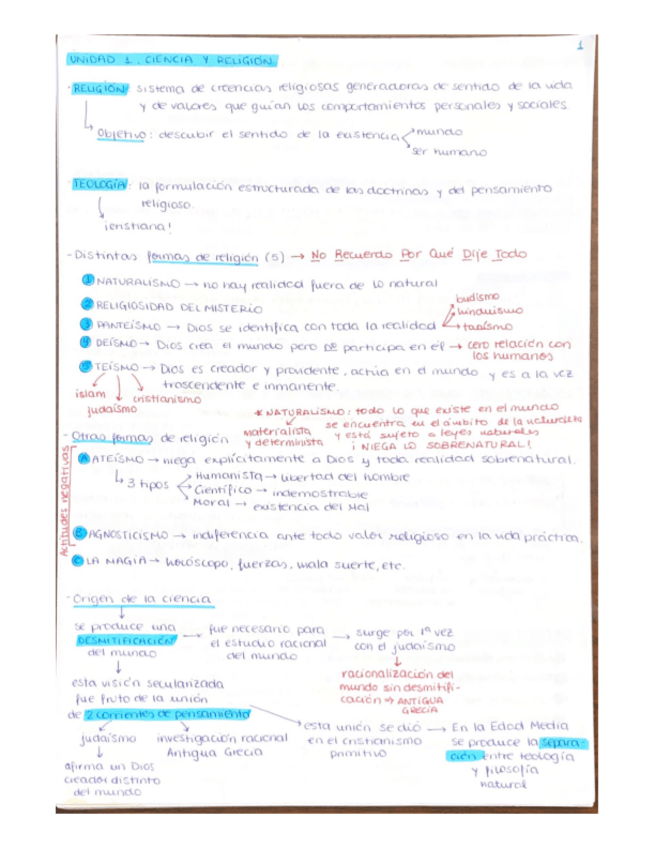 1
UNIDAD 1. CIENCIA Y RELIGIÓN.
· RELIGIÓN: sistema de creencias religiosas generadoras de sentido de la vida
y de valores que guían los comportamientos personales y sociales.
↳ Objetivo: descubrir el sentido de la existencia → mundo
→ ser humano
· TEOLOGÍA: la formulación estructurada de las doctrinas y del pensamiento
religioso.
¡cristiana!
- Distintas formas de religión (5) → No Recuerdo Por Qué Dije Todo
1 NATURALISMO → no hay realidad fuera de lo natural
2 RELIGIOSIDAD DEL MISTERIO
budismo
3 PANTEÍSMO → Dios se identifica con toda la realidad → hinduismo
→ taoísmo
4 DEÍSMO → Dios crea el mundo pero DE participa en él → cero relación con
los humanos
5 TEÍSMO → Dios es creador y providente, actúa en el mundo y es a la vez
trascendente e inmanente.
islam cristianismo
judaísmo
* NATURALISMO: todo lo que existe en el mundo
se encuentra en el ámbito de la naturaleza
y está sujeto a leyes naturales
¡NIEGA LO SOBRENATURAL!
materialista
y determinista
- Otras formas de religión
Actitudes negativas
A ATEÍSMO → niega explícitamente a Dios y toda realidad sobrenatural.
↳ 3 tipos → Humanista → libertad del hombre
→ Científico → indemostrable
→ Moral → existencia del Mal
B AGNOSTICISMO → indiferencia ante todo valor religioso en la vida práctica.
C LA MAGIA → horóscopo, fuerzas, mala suerte, etc.
· Origen de la ciencia
se produce una
DESMITIFICACIÓN
del mundo
fue necesario para
el estudio racional
del mundo
→ surge por 1ª vez
con el judaísmo
racionalización del
mundo sin desmitifi-
cación → ANTIGUA
GRECIA
esta visión secularizada
fue fruto de la unión
de 2 corrientes de pensamiento
judaísmo
afirma un Dios
creador distinto
del mundo
investigación racional
Antigua Grecia
esta unión se dió
en el cristianismo
primitivo
→ En la Edad Media
se produce la separa-
ción entre teología
y filosofía
natural